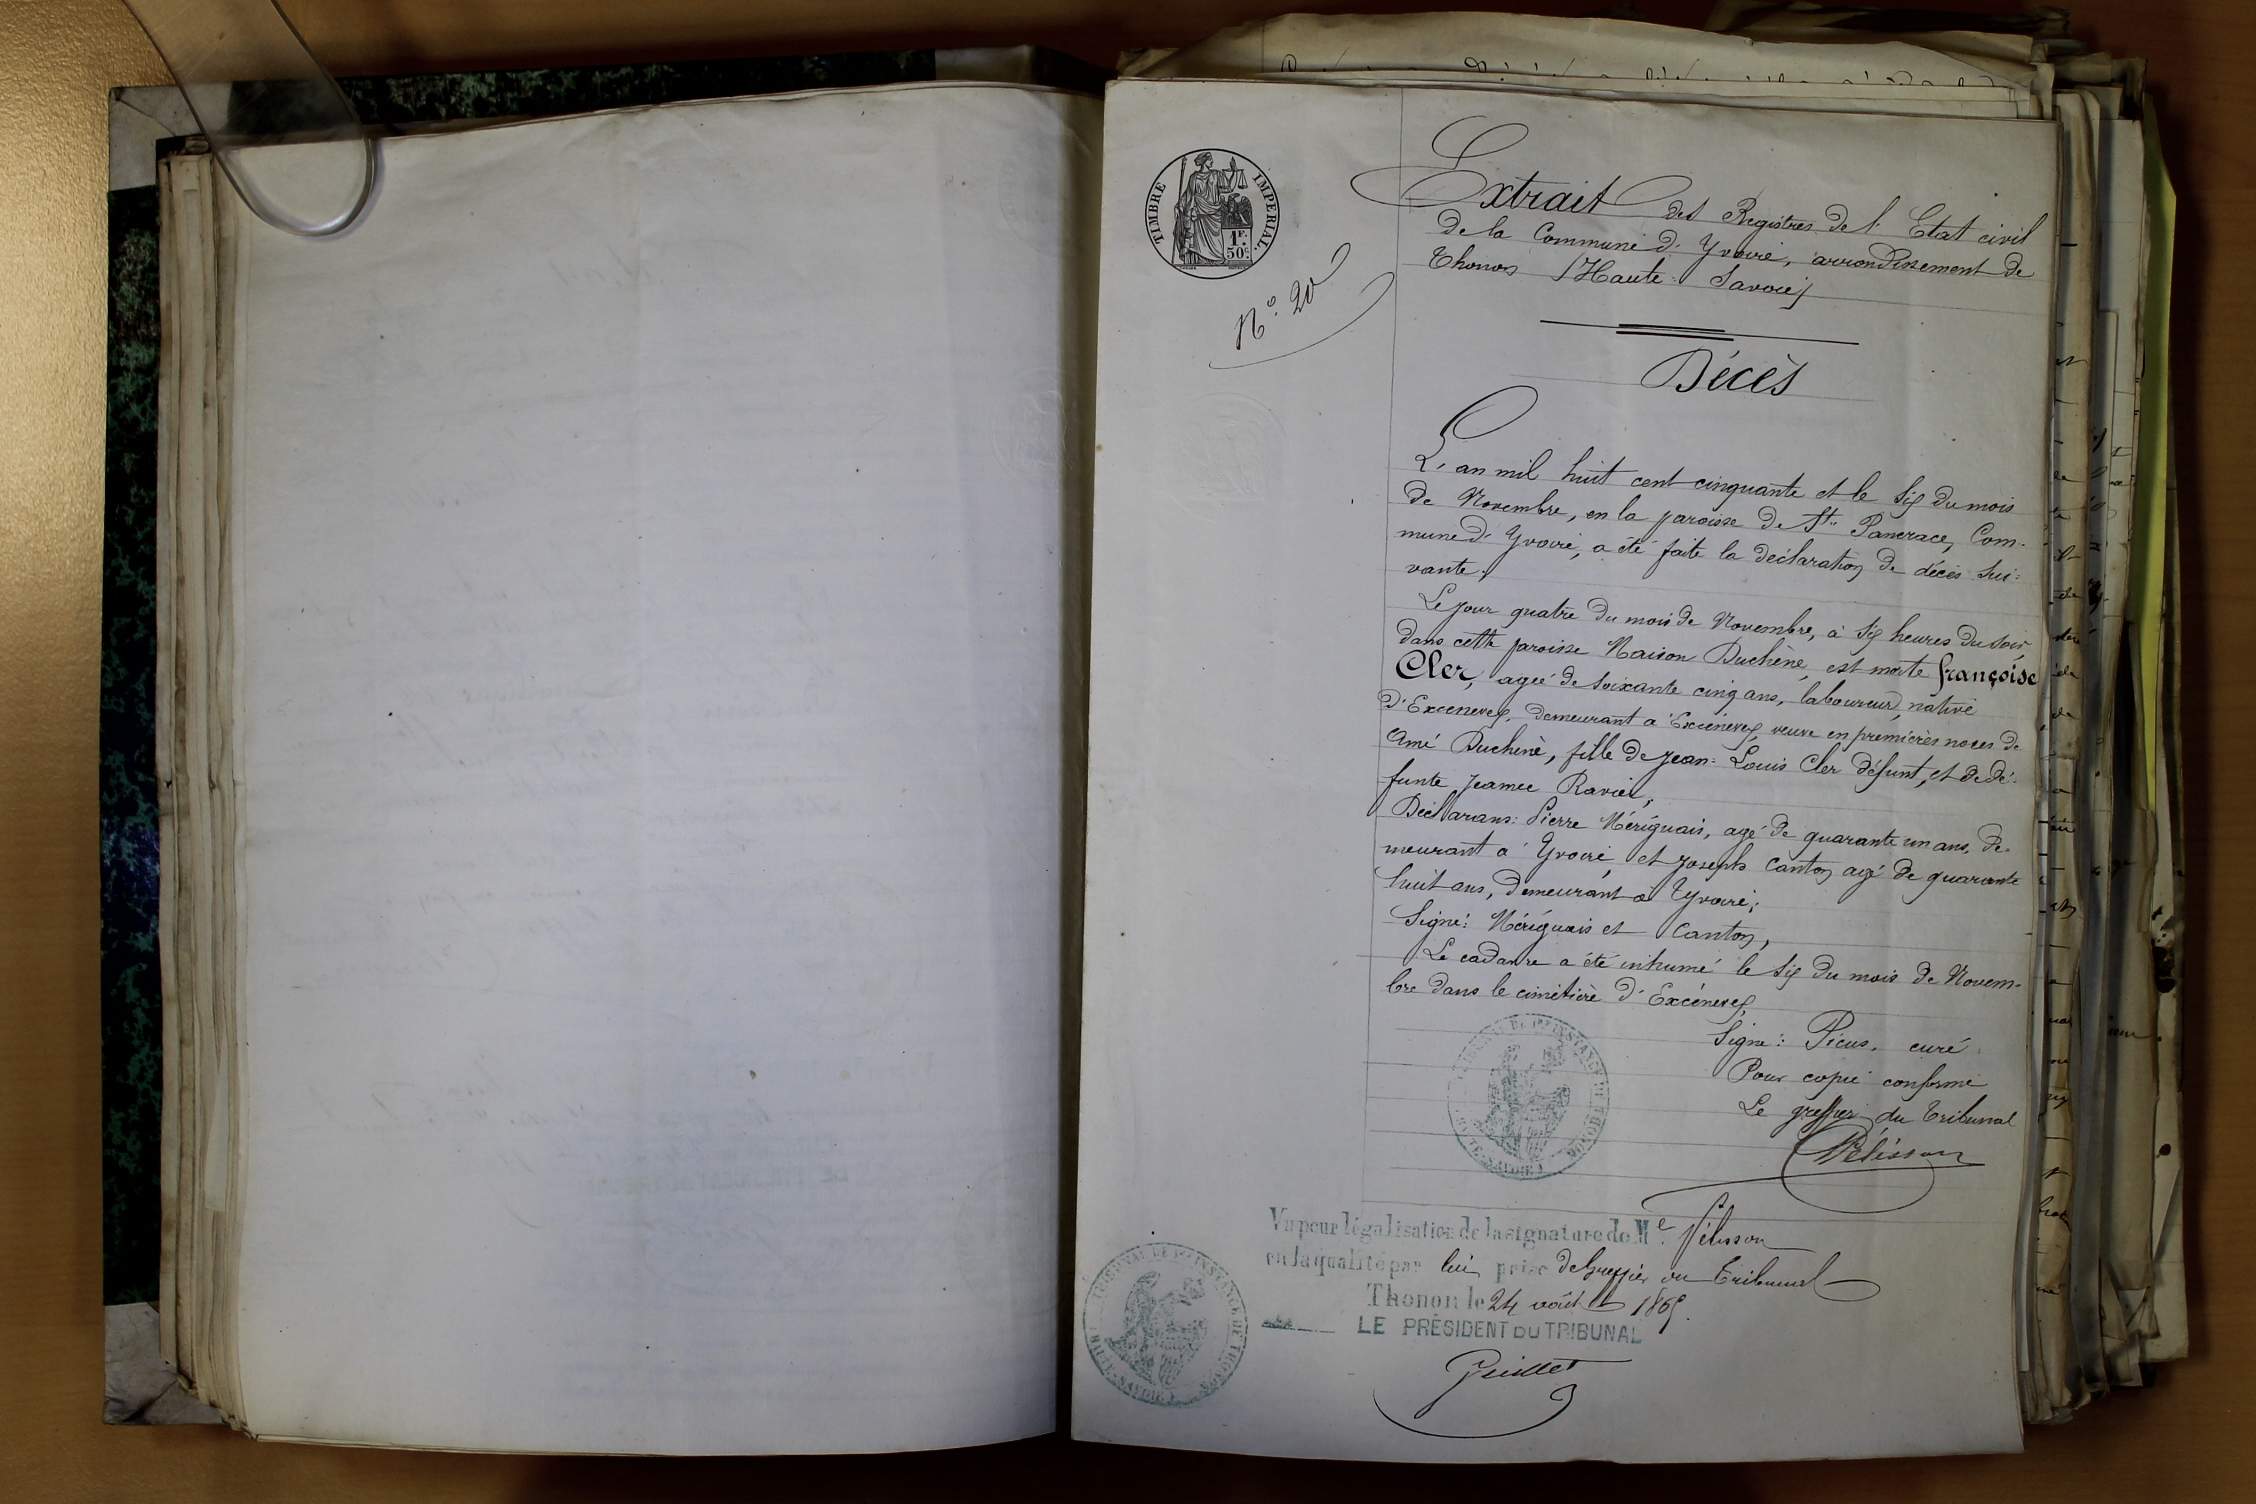 TIMBRE IMPERIAL.
1F.
50c.
N° 20
Extrait des Registres de l' Etat civil
de la Commune d' Yvoire, arrondissement de
Thonon (Haute-Savoie)
Décès
L'an mil huit cent cinquante et le Six du mois
de Novembre, en la paroisse de St. Pancrace, Com-
mune d' Yvoire, a été faite la déclaration de décès sui-
vante.
Le jour quatre du mois de Novembre, à Six heures du soir
dans cette paroisse Maison Duchêne, est morte françoise
Cler, agée de soixante cinq ans, laboureur, native
d'Excenevex, demeurant à Excénevex, veuve en premières noces de
Amé Duchene, fille de Jean-Louis Cler défunt, et de dé-
funte Jeanne Ravier,
Déclarans: Pierre Mériguais, agé de quarante un ans, de-
meurant à Yvoire, et Joseph Canton agé de quarante
huit ans, demeurant à Yvoire;
Signé: Mériguais et Canton,
Le cadavre a été inhumé le Six du mois de Novem-
bre dans le cimetière d'Excénevex,
Signé: Picus, curé
Pour copie conforme
Le greffier du Tribunal
Pélisson
TRIBUNAL DE 1re INSTANCE DE THONON
HAUTE-SAVOIE
Vu pour légalisation de la signature de Me. Pélisson
en la qualité par lui prise de Greffier au Tribunal
Thonon le 24 août 1869.
LE PRÉSIDENT DU TRIBUNAL
TRIBUNAL DE 1re INSTANCE DE THONON
HAUTE-SAVOIE